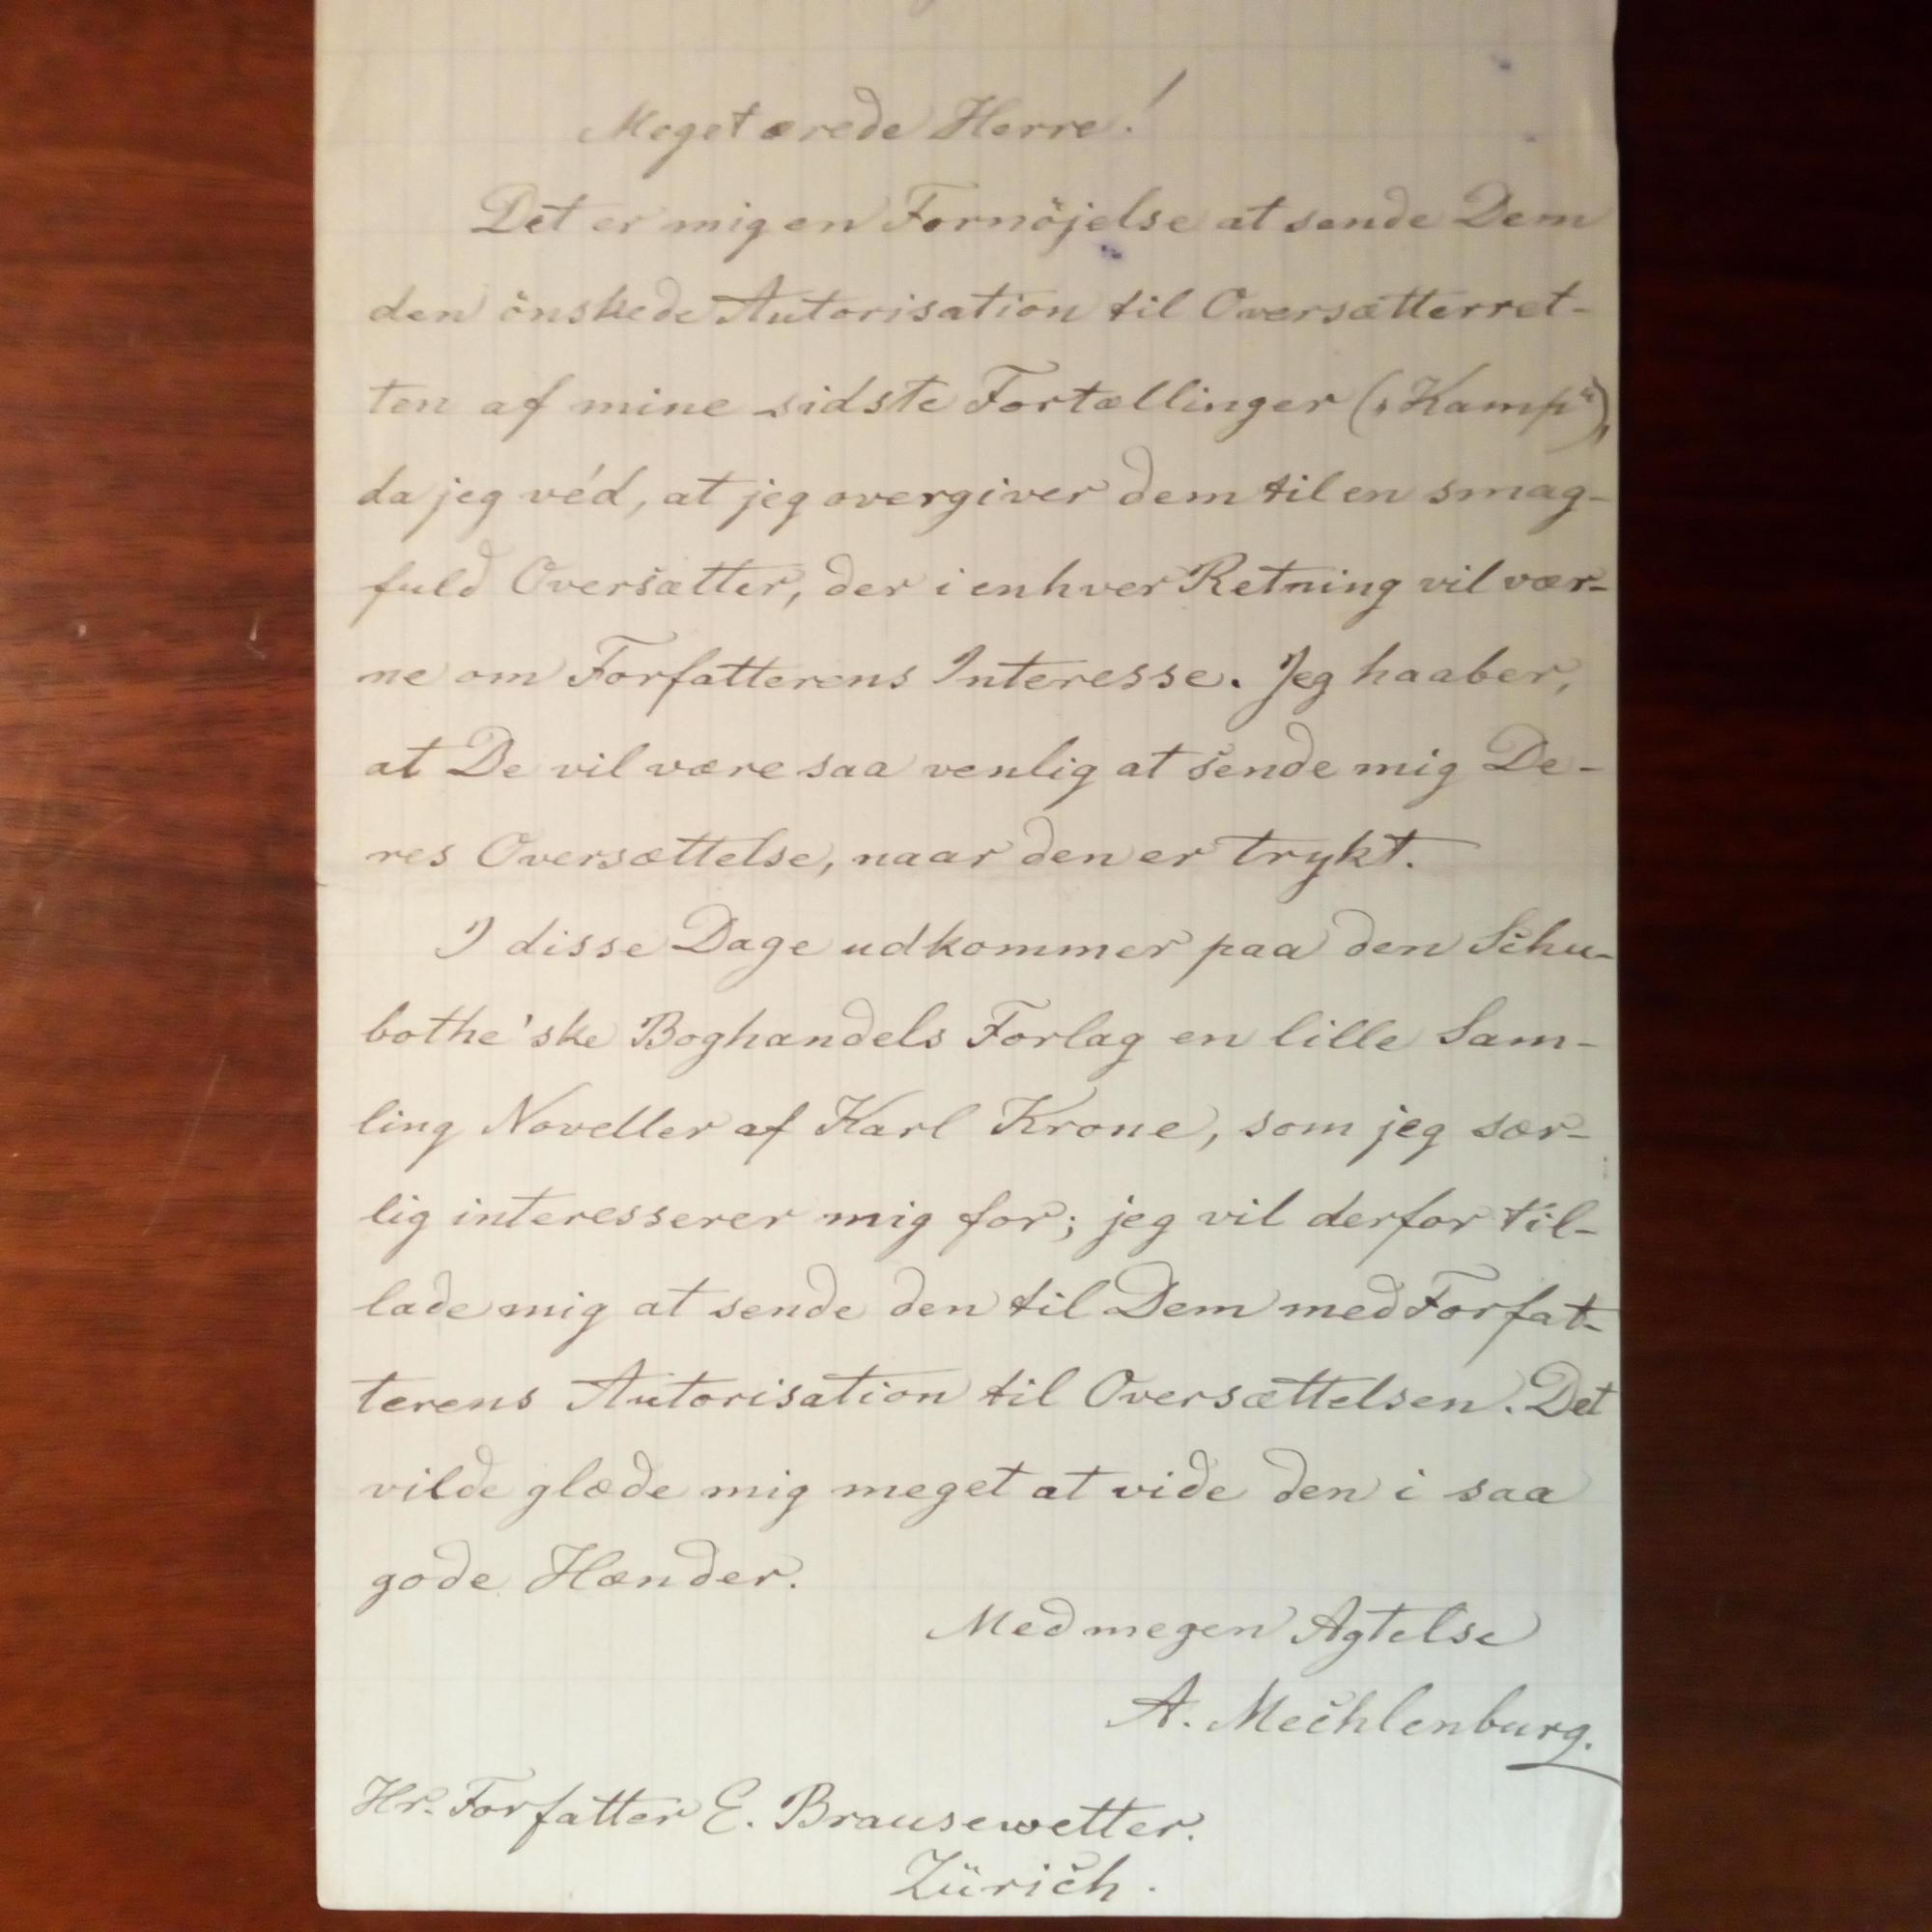 Meget ærede Herre!
Det er mig en Fornöjelse at sende Dem
den önskede Autorisation til Oversætterret-
ten af mine sidste Fortællinger („Kamp“),
da jeg véd, at jeg overgiver dem til en smag-
fuld Oversætter, der i enhver Retning vil vær-
ne om Forfatterens Interesse. Jeg haaber,
at De vil være saa venlig at sende mig De-
res Oversættelse, naar den er trykt.
I disse Dage udkommer paa den Schu-
bothe'ske Boghandels Forlag en lille Sam-
ling Noveller af Karl Krone, som jeg sær-
lig interesserer mig for; jeg vil derfor til-
lade mig at sende den til Dem med Forfat-
terens Autorisation til Oversættelsen. Det
vilde glæde mig meget at vide den i saa
gode Hænder.
Med megen Agtelse
A. Mechlenburg.
Hr. Forfatter E. Brausewetter.
Zürich.